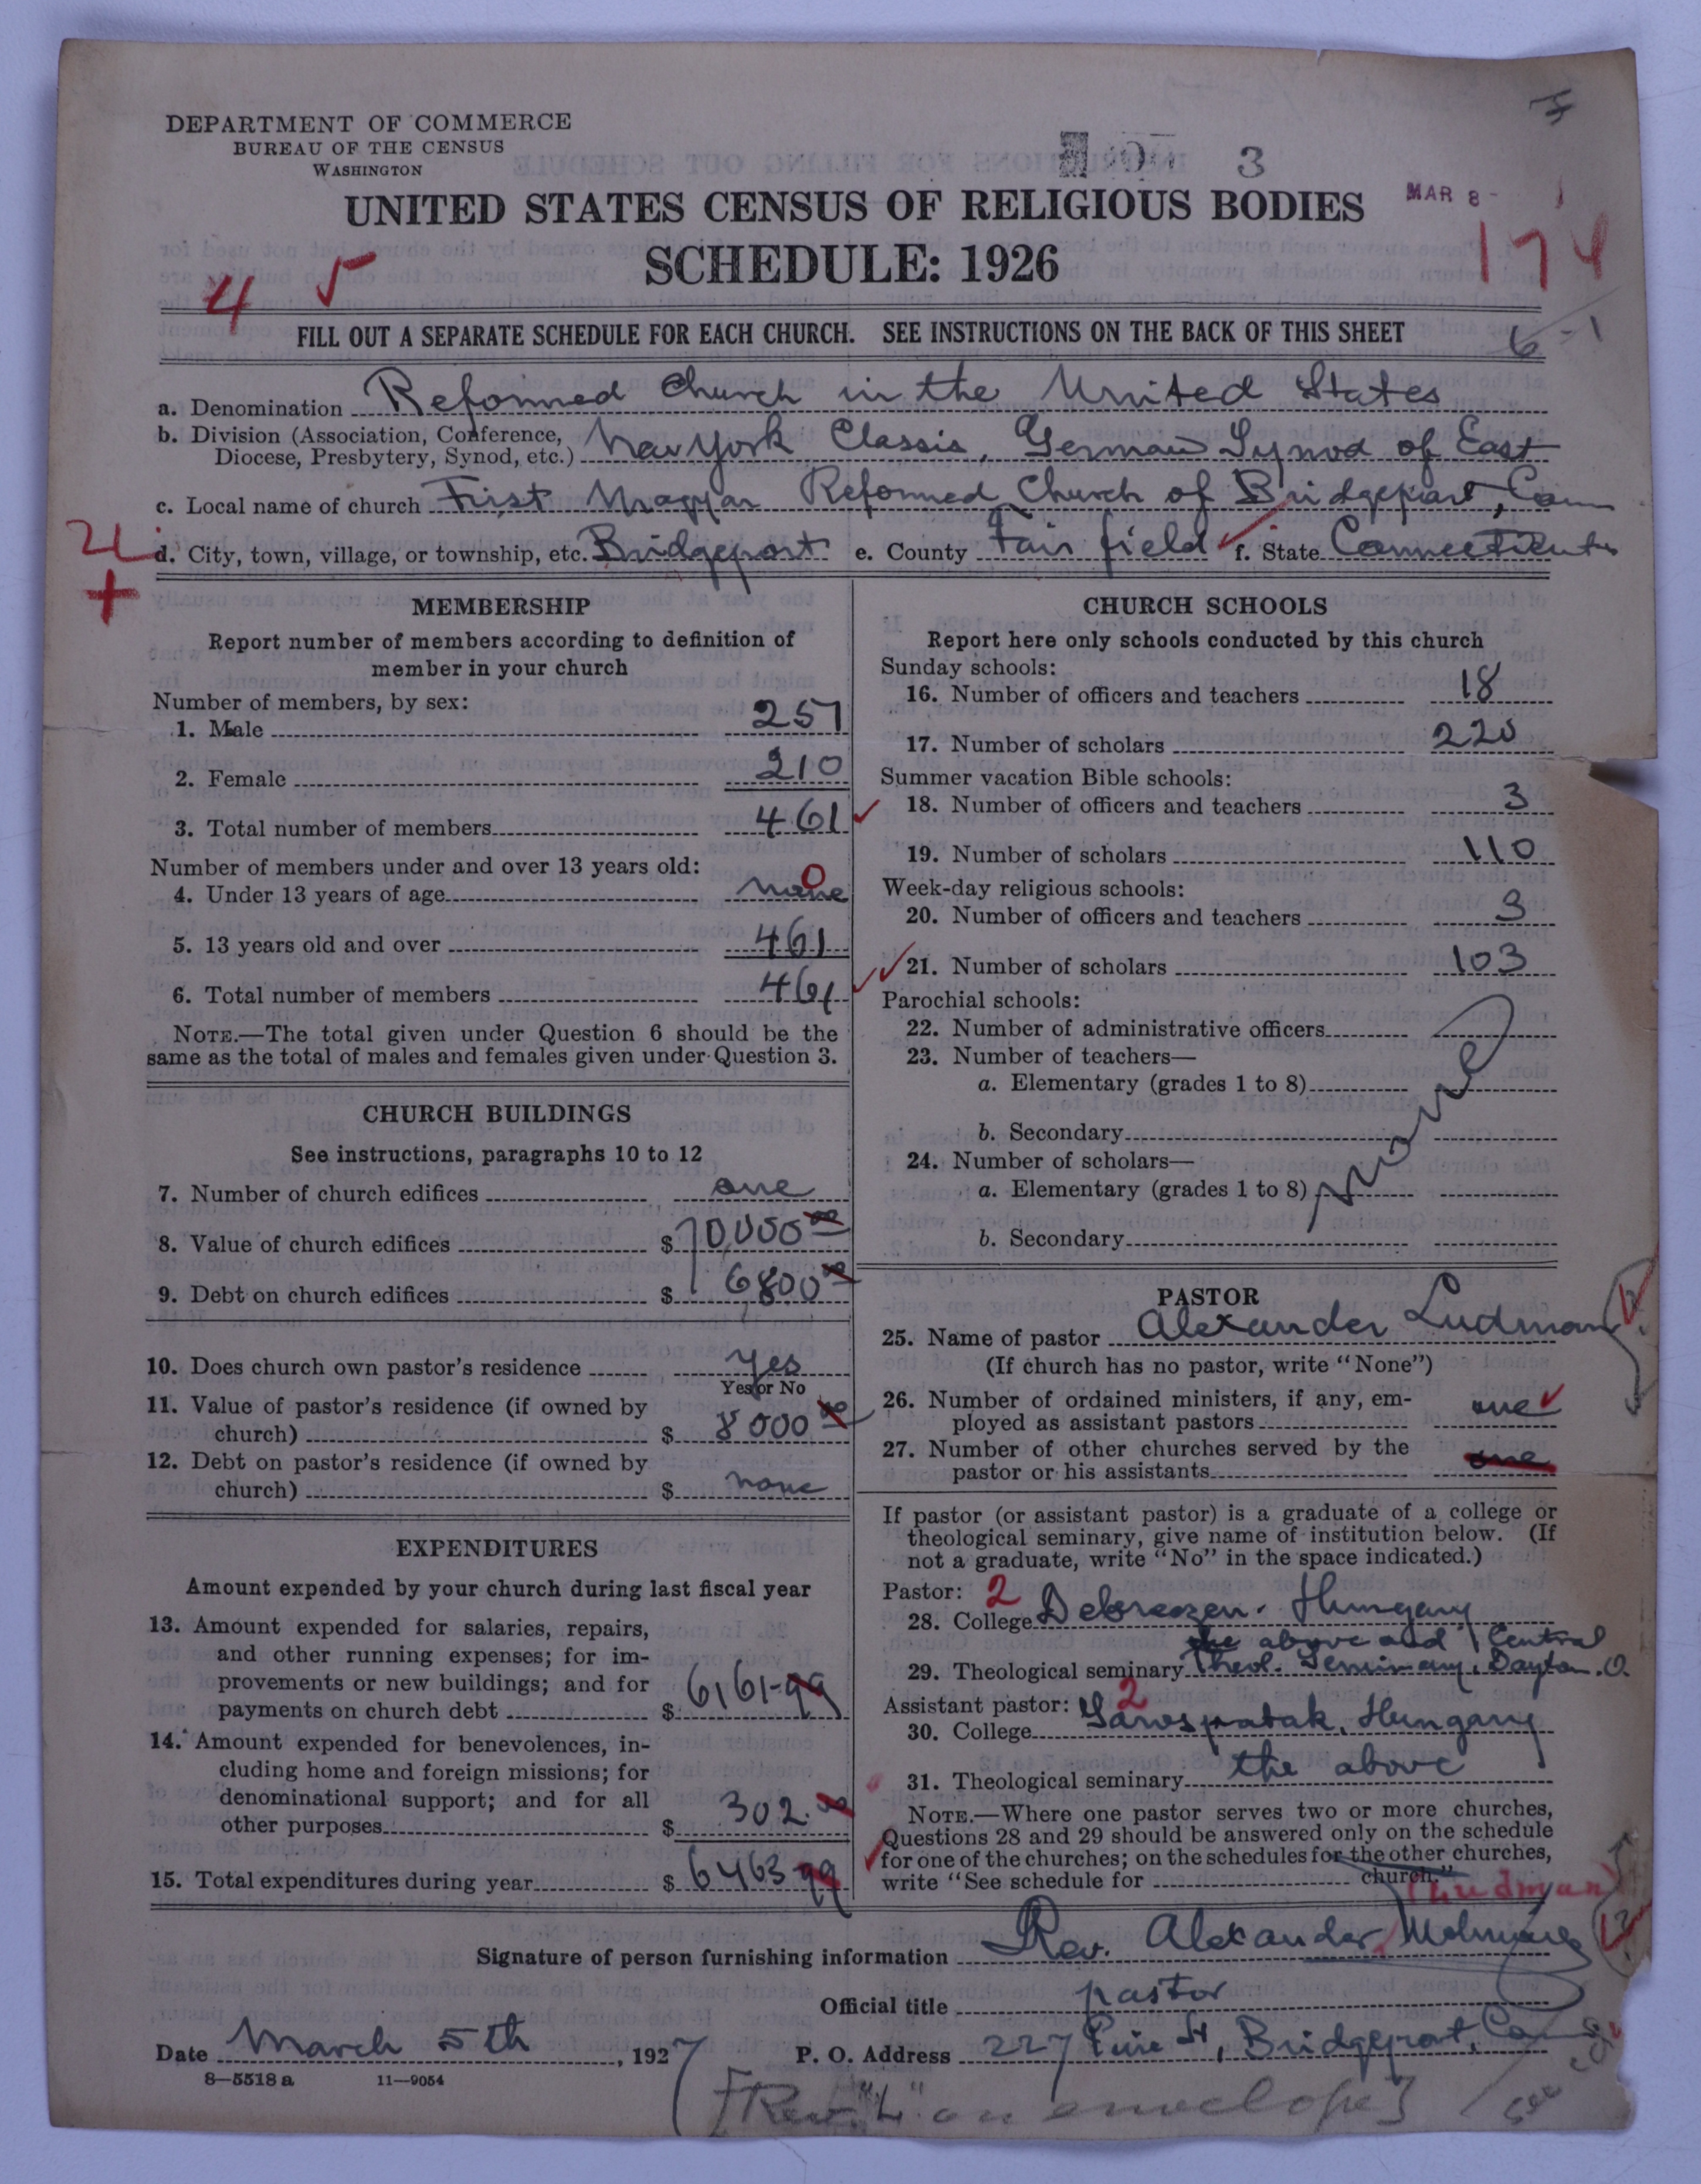 DEPARTMENT OF COMMERCE
BUREAU OF THE CENSUS
WASHINGTON
3
MAR 8 -
UNITED STATES CENSUS OF RELIGIOUS BODIES
SCHEDULE: 1926
174
4 5
FILL OUT A SEPARATE SCHEDULE FOR EACH CHURCH. SEE INSTRUCTIONS ON THE BACK OF THIS SHEET
6-1
a. Denomination Reformed Church in the United States
b. Division (Association, Conference, Diocese, Presbytery, Synod, etc.) New York Classis, German Synod of East
c. Local name of church First Magyar Reformed Church of Bridgeport, Conn
d. City, town, village, or township, etc. Bridgeport e. County Fairfield f. State Connecticut
MEMBERSHIP
Report number of members according to definition of
member in your church
Number of members, by sex:
1. Male 251
2. Female 210
3. Total number of members 461
Number of members under and over 13 years old:
4. Under 13 years of age none 0
5. 13 years old and over 461
6. Total number of members 461
NOTE.—The total given under Question 6 should be the
same as the total of males and females given under Question 3.
CHURCH BUILDINGS
See instructions, paragraphs 10 to 12
7. Number of church edifices one
8. Value of church edifices $ 70,000 00
9. Debt on church edifices $ 6,800 00
10. Does church own pastor's residence yes
Yes or No
11. Value of pastor's residence (if owned by
church) $ 8000 00
12. Debt on pastor's residence (if owned by
church) $ none
EXPENDITURES
Amount expended by your church during last fiscal year
13. Amount expended for salaries, repairs,
and other running expenses; for im-
provements or new buildings; and for
payments on church debt $ 6161-99
14. Amount expended for benevolences, in-
cluding home and foreign missions; for
denominational support; and for all
other purposes $ 302.00
15. Total expenditures during year $ 6463 99
CHURCH SCHOOLS
Report here only schools conducted by this church
Sunday schools:
16. Number of officers and teachers 18
17. Number of scholars 220
Summer vacation Bible schools:
18. Number of officers and teachers 3
19. Number of scholars 110
Week-day religious schools:
20. Number of officers and teachers 3
21. Number of scholars 103
Parochial schools:
22. Number of administrative officers
23. Number of teachers—
a. Elementary (grades 1 to 8)
b. Secondary
24. Number of scholars—
a. Elementary (grades 1 to 8)
b. Secondary
none
PASTOR
25. Name of pastor Alexander Ludman
(If church has no pastor, write "None")
26. Number of ordained ministers, if any, em-
ployed as assistant pastors one
27. Number of other churches served by the
pastor or his assistants one
If pastor (or assistant pastor) is a graduate of a college or
theological seminary, give name of institution below. (If
not a graduate, write "No" in the space indicated.)
Pastor: 2
28. College Debreczen. Hungary
the above and Central
29. Theological seminary Theol. Seminary, Dayton. O.
Assistant pastor: 2
30. College Sarospatak, Hungary
31. Theological seminary the above
NOTE.—Where one pastor serves two or more churches,
Questions 28 and 29 should be answered only on the schedule
for one of the churches; on the schedules for the other churches,
write "See schedule for church."
Ludman
Signature of person furnishing information Rev. Alexander
Official title pastor
Date March 5th, 1927 P. O. Address 227 Pine St, Bridgeport, Conn
8—5518 a 11—9054
[Rev. "L" on envelope]